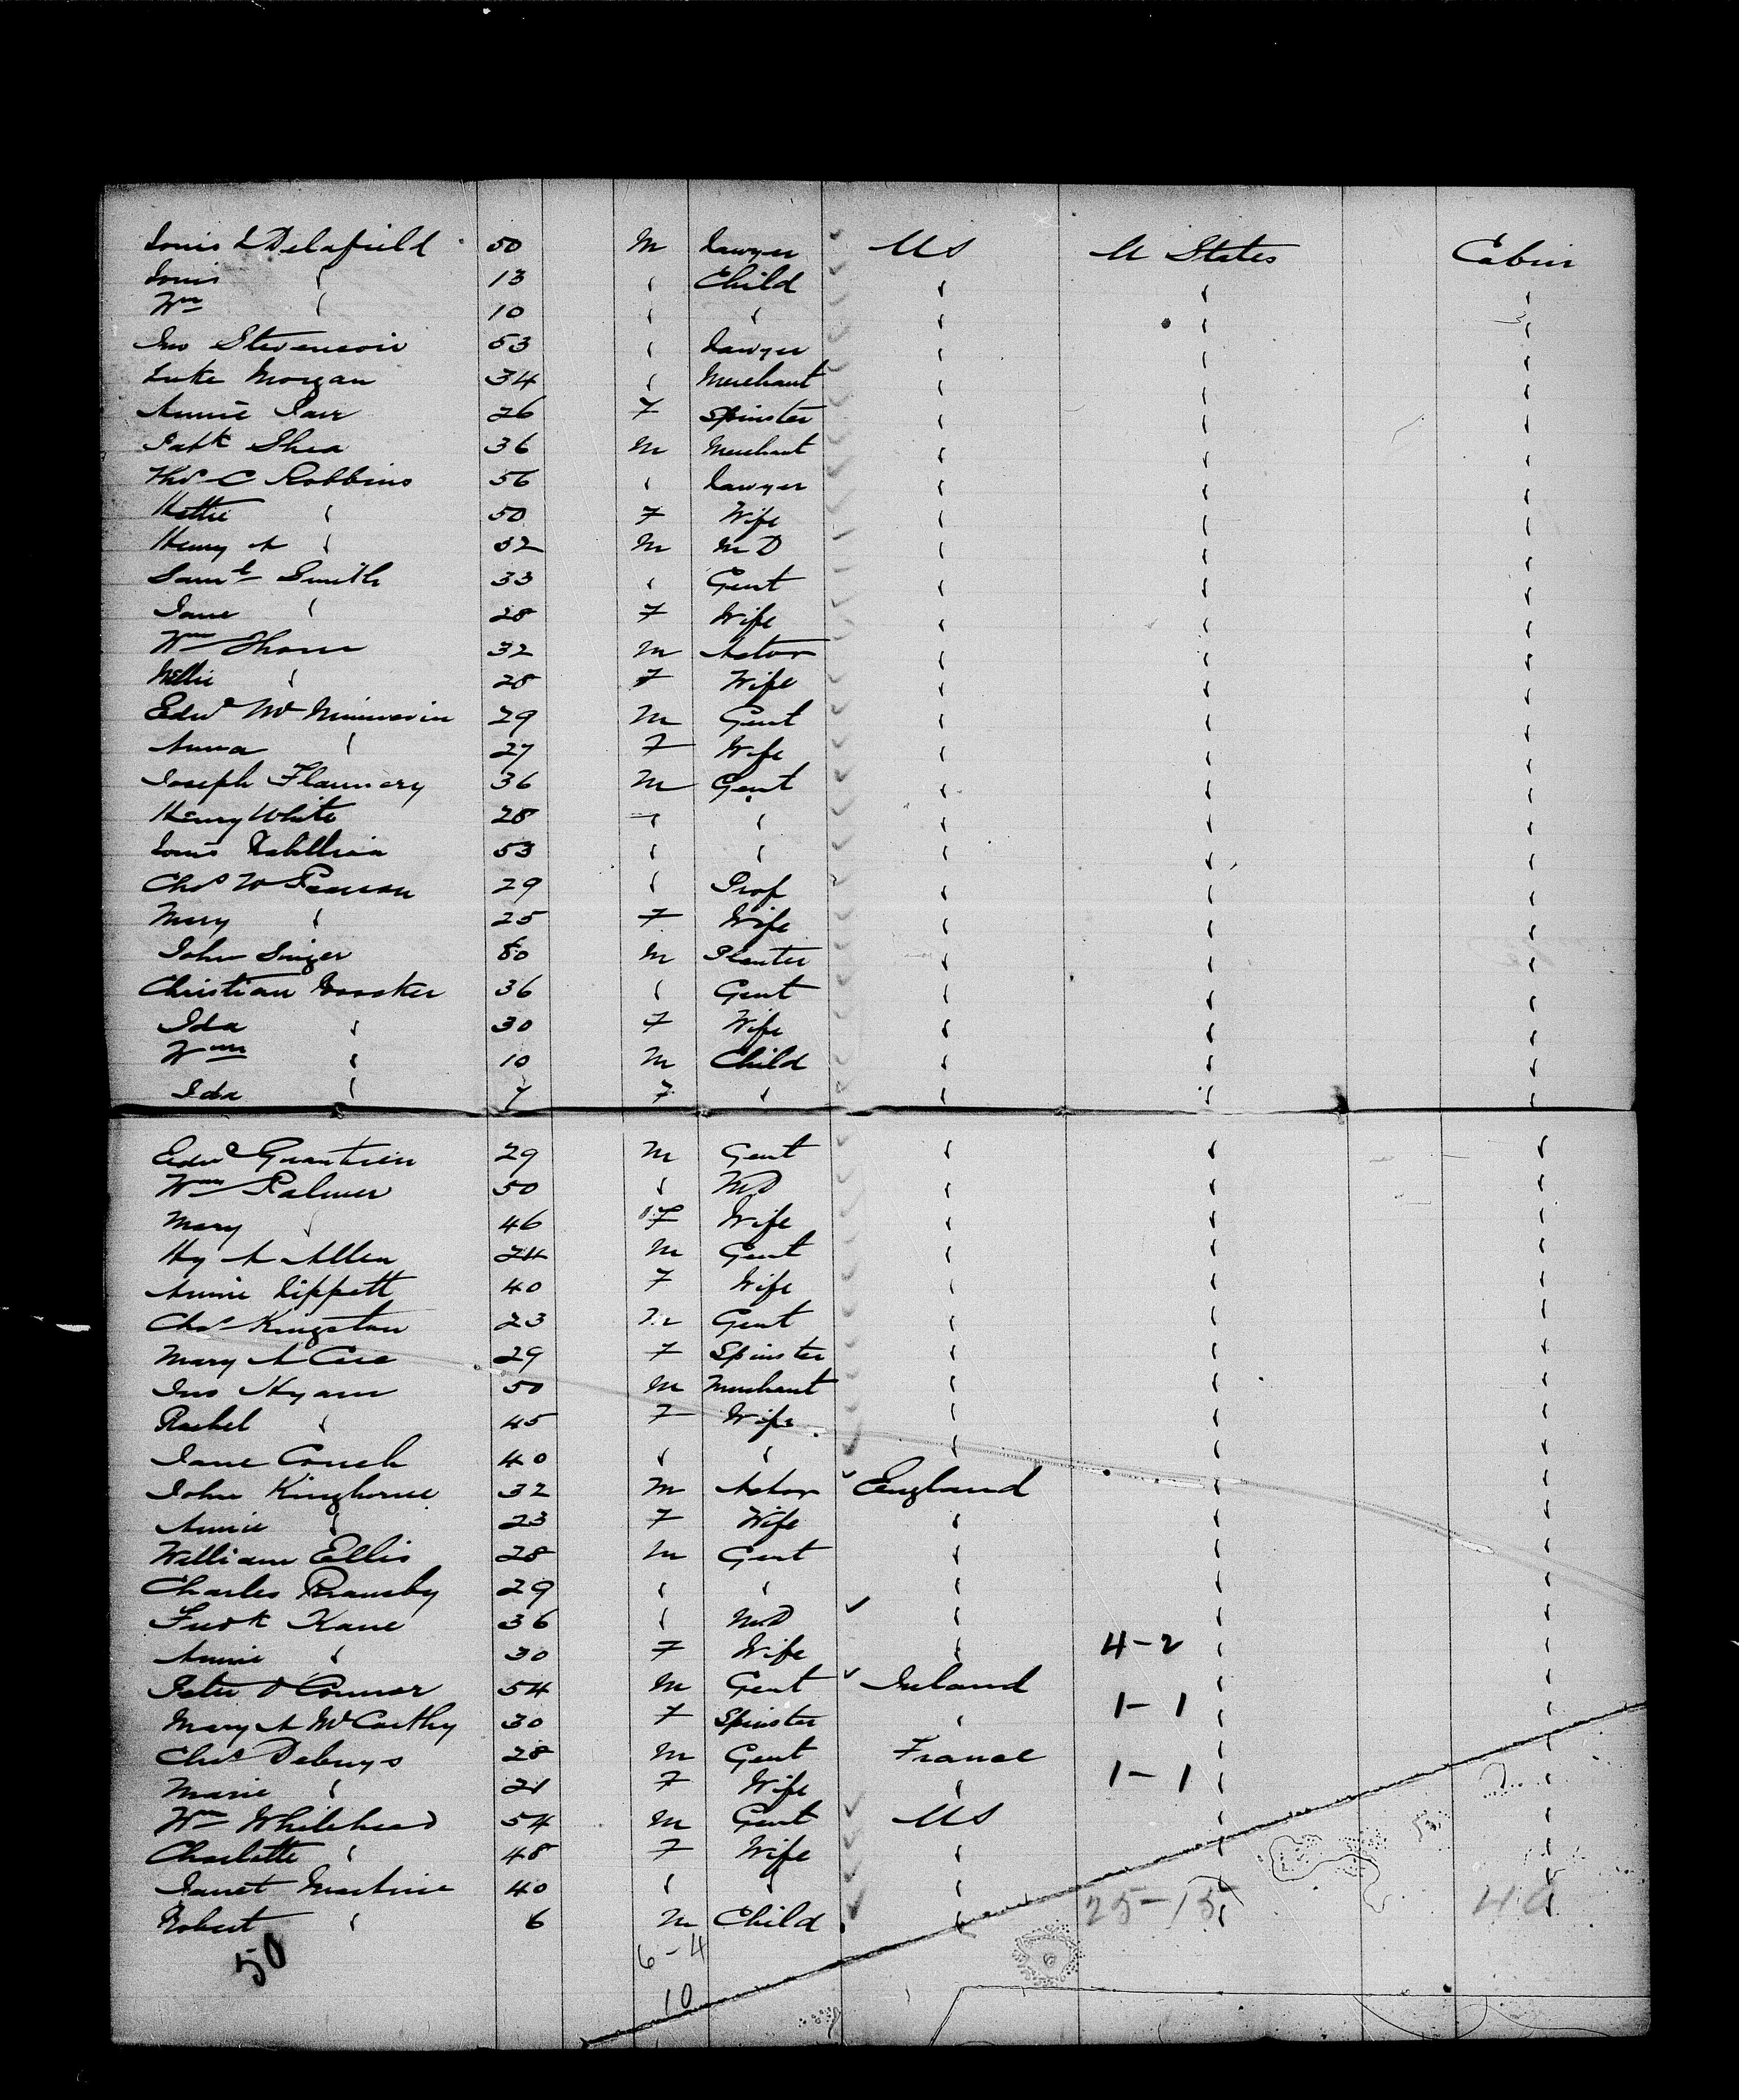 Louis L Delafield 50 M Lawyer US U States Cabin
Louis " 13 " Child " " "
Wm " 10 " " " " "
Jno Stevenson 53 " Lawyer " " "
Luke Morgan 34 " Merchant " " "
Annie 26 F Spinster " " "
Patk Shea 36 M Merchant " " "
Thos C Robbins 56 " Lawyer " " "
Hettie " 50 F Wife " " "
Henry A " 32 M M D " " "
Saml Smith 33 " Gent " " "
Jane " 28 F Wife " " "
Wm 32 M Actor " " "
Nellie " 28 F Wife " " "
Edwd Mc 29 M Gent " " "
Anna " 27 F Wife " " "
Joseph Flannery 36 M Gent " " "
Henry White 28 " " " " "
Louis 53 " " " " "
Chas W Pearson 29 " Prof " " "
Mary " 25 F Wife " " "
John Singer 60 M Planter " " "
Christian 36 " Gent " " "
Ida " 30 F Wife " " "
Wm " 10 M Child " " "
Ida " 7 F " " " "
Edwd 29 M Gent " " "
Wm Palmer 50 " M D " " "
Mary " 46 F Wife " " "
Hy A Allen 24 M Gent " " "
Annie Lippett 40 F Wife " " "
Chas Kingston 23 M Gent " " "
Mary A 29 F Spinster " " "
Jno Hyam 50 M Merchant " " "
Rachel " 45 F Wife " " "
Jane Couch 40 " " " " "
John Kinghorne 32 M Actor England " "
Annie " 23 F Wife " " "
William Ellis 28 M Gent " " "
Charles Bransby 29 " " " " "
Fredk Kane 36 " M D " " "
Annie " 30 F Wife " 4-2 " "
Peter O Connor 54 M Gent Ireland " "
Mary A McCarthy 30 F Spinster " 1-1 " "
Chas Debuys 28 M Gent France " "
Marie " 21 F Wife " 1-1 " "
Wm Whitehead 54 M Gent US " "
Charlotte " 48 F Wife " " "
Janet 40 " " " " "
Robert " 6 M Child " 25-15 " 40 "
50 6-4
10